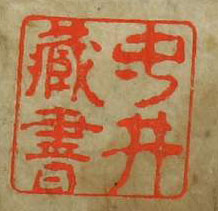 中井
藏書